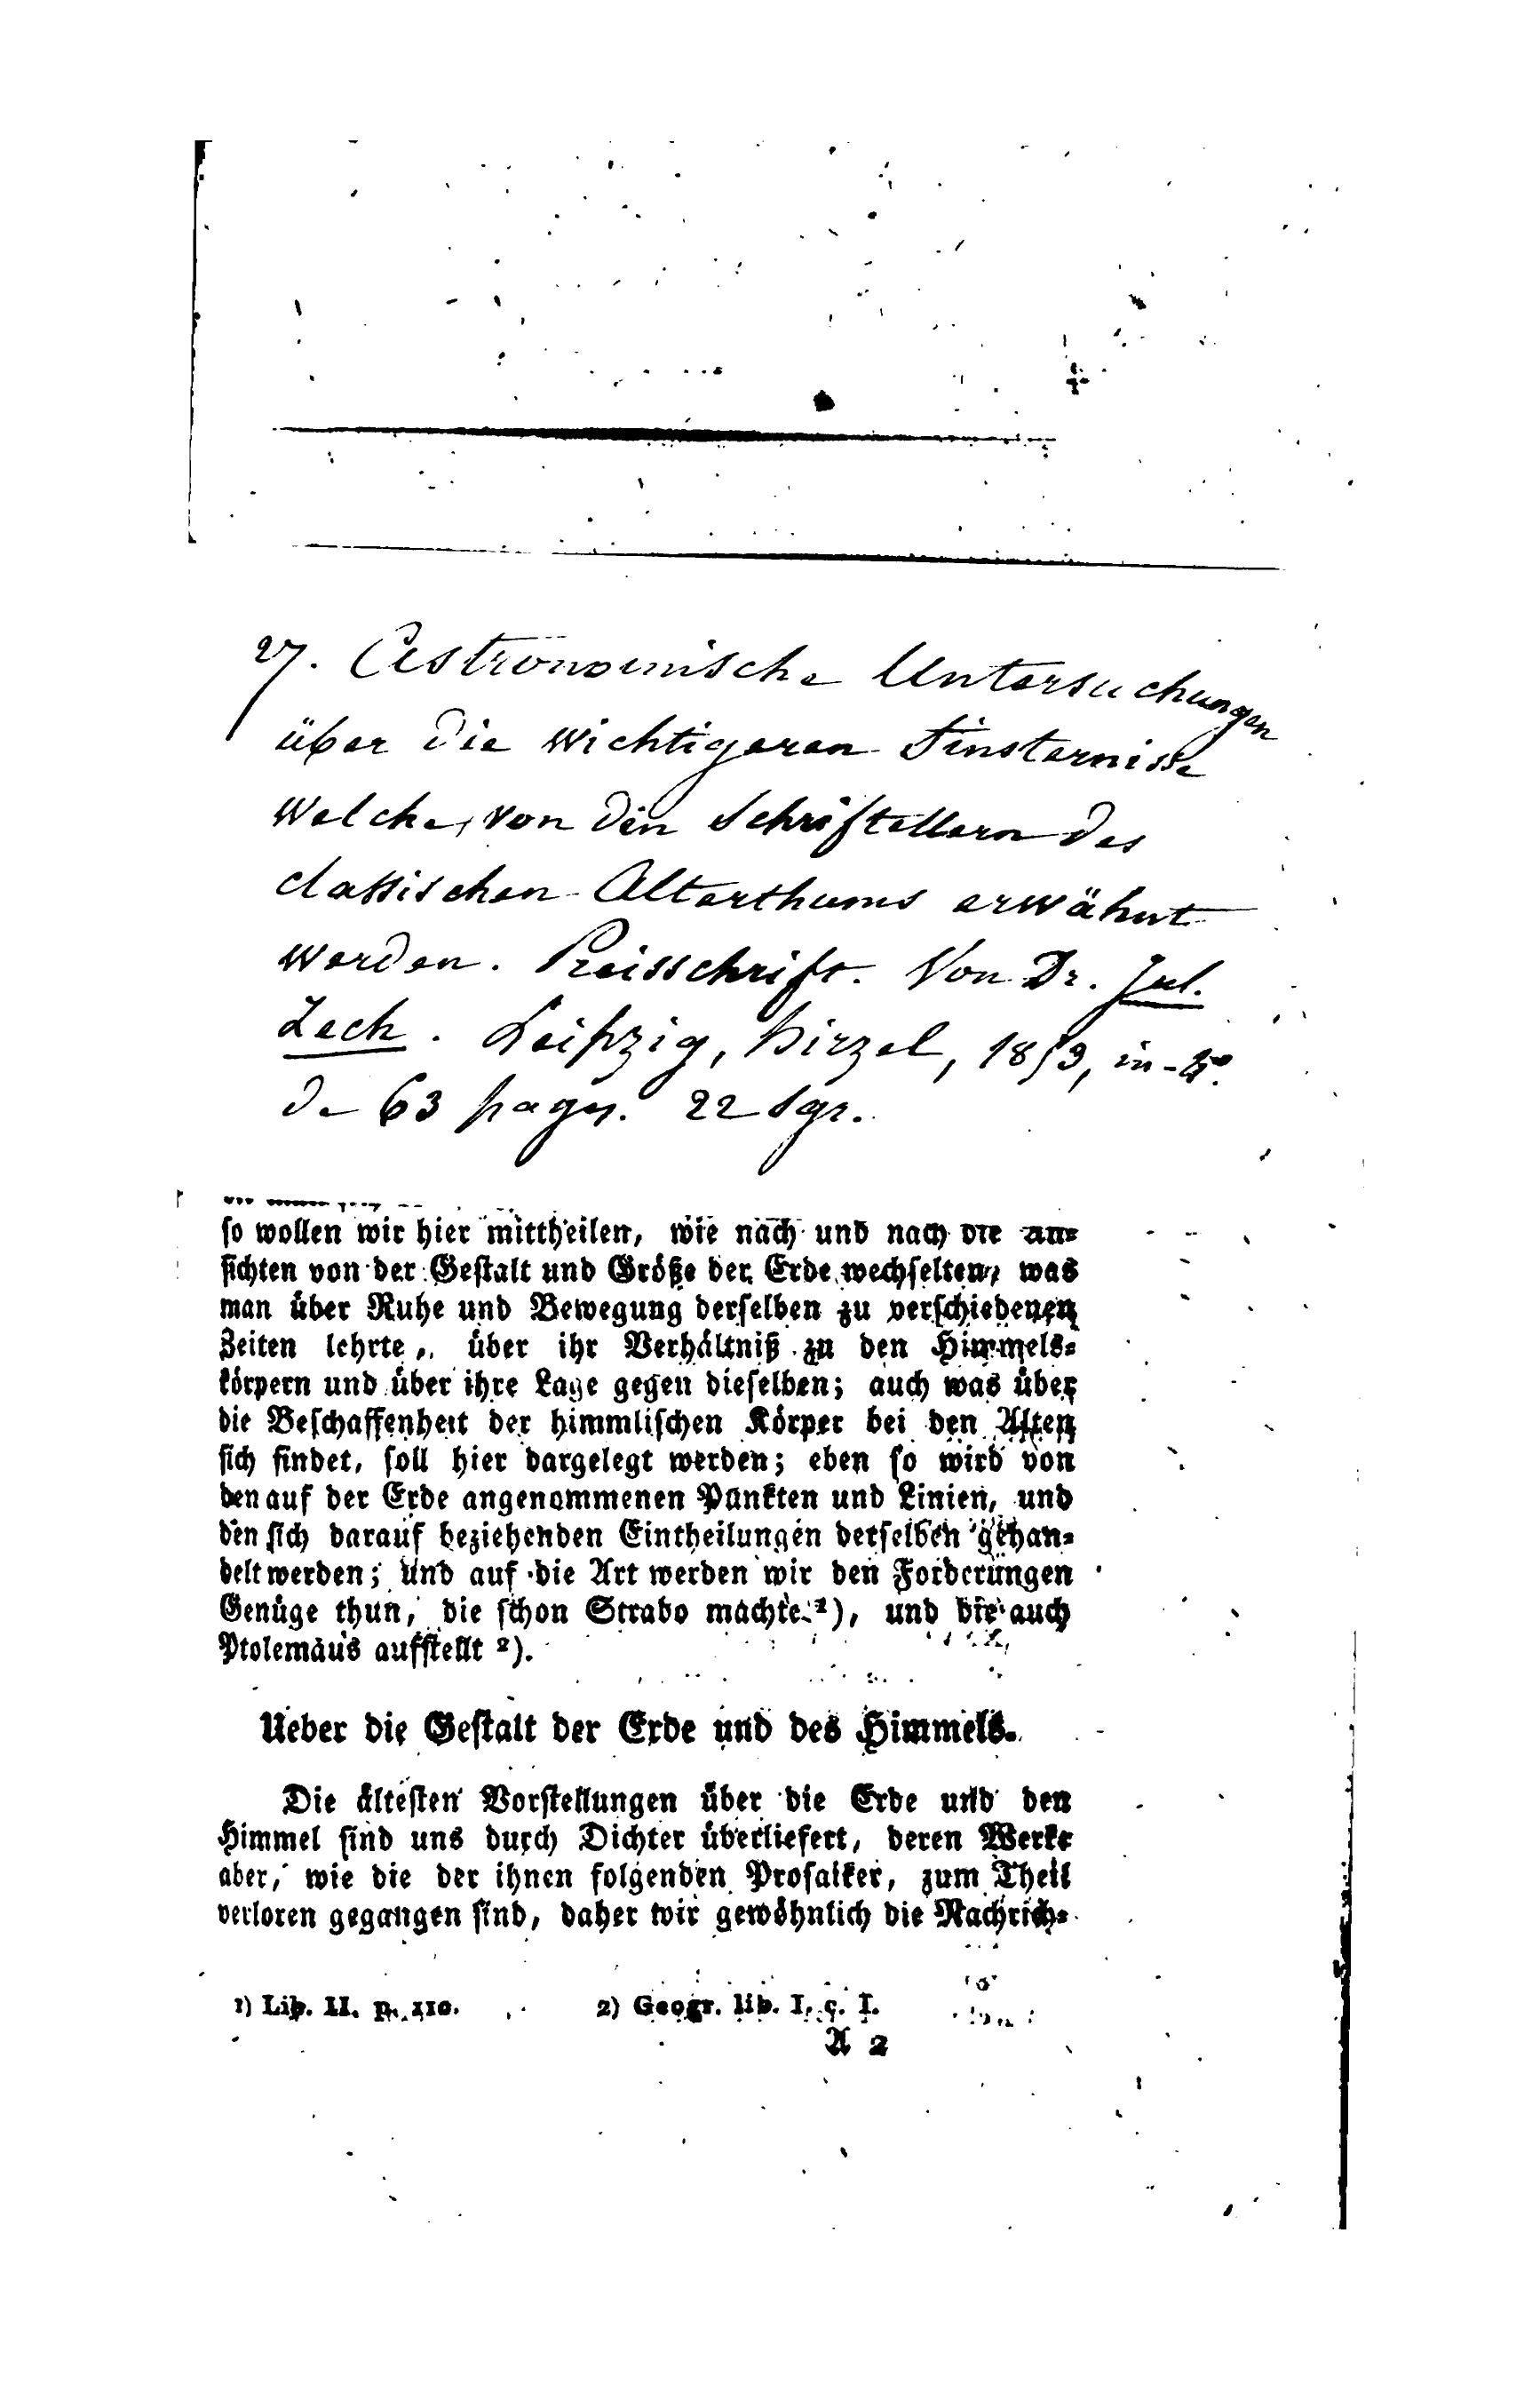 27. Astronomische Untersuchungen
über die wichtigeren Finsternisse
welche, von den Schriftellern des
classischen Alterthums erwähnt
werden. Preisschrift. Von Dr. Jul.
Zech. Leipzig, Hirzel, 1853, in-4°.
de 63 pages. 22 Sgr.
so wollen wir hier mittheilen, wie nach und nach die An-
sichten von der Gestalt und Größe der Erde wechselten, was
man über Ruhe und Bewegung derselben zu verschiedenen
Zeiten lehrte, über ihr Verhältniß zu den Himmels-
körpern und über ihre Lage gegen dieselben; auch was über
die Beschaffenheit der himmlischen Körper bei den Alten
sich findet, soll hier dargelegt werden; eben so wird von
den auf der Erde angenommenen Punkten und Linien, und
den sich darauf beziehenden Eintheilungen derselben gehan-
delt werden; und auf die Art werden wir den Forderungen
Genüge thun, die schon Strabo machte ¹), und die auch
Ptolemäus aufstellt ²).
Ueber die Gestalt der Erde und des Himmels.
Die ältesten Vorstellungen über die Erde und den
Himmel sind uns durch Dichter überliefert, deren Werke
aber, wie die der ihnen folgenden Prosaiker, zum Theil
verloren gegangen sind, daher wir gewöhnlich die Nachrich-
1) Lib. II. p. 110. 2) Geogr. lib. I. c. I.
A 2